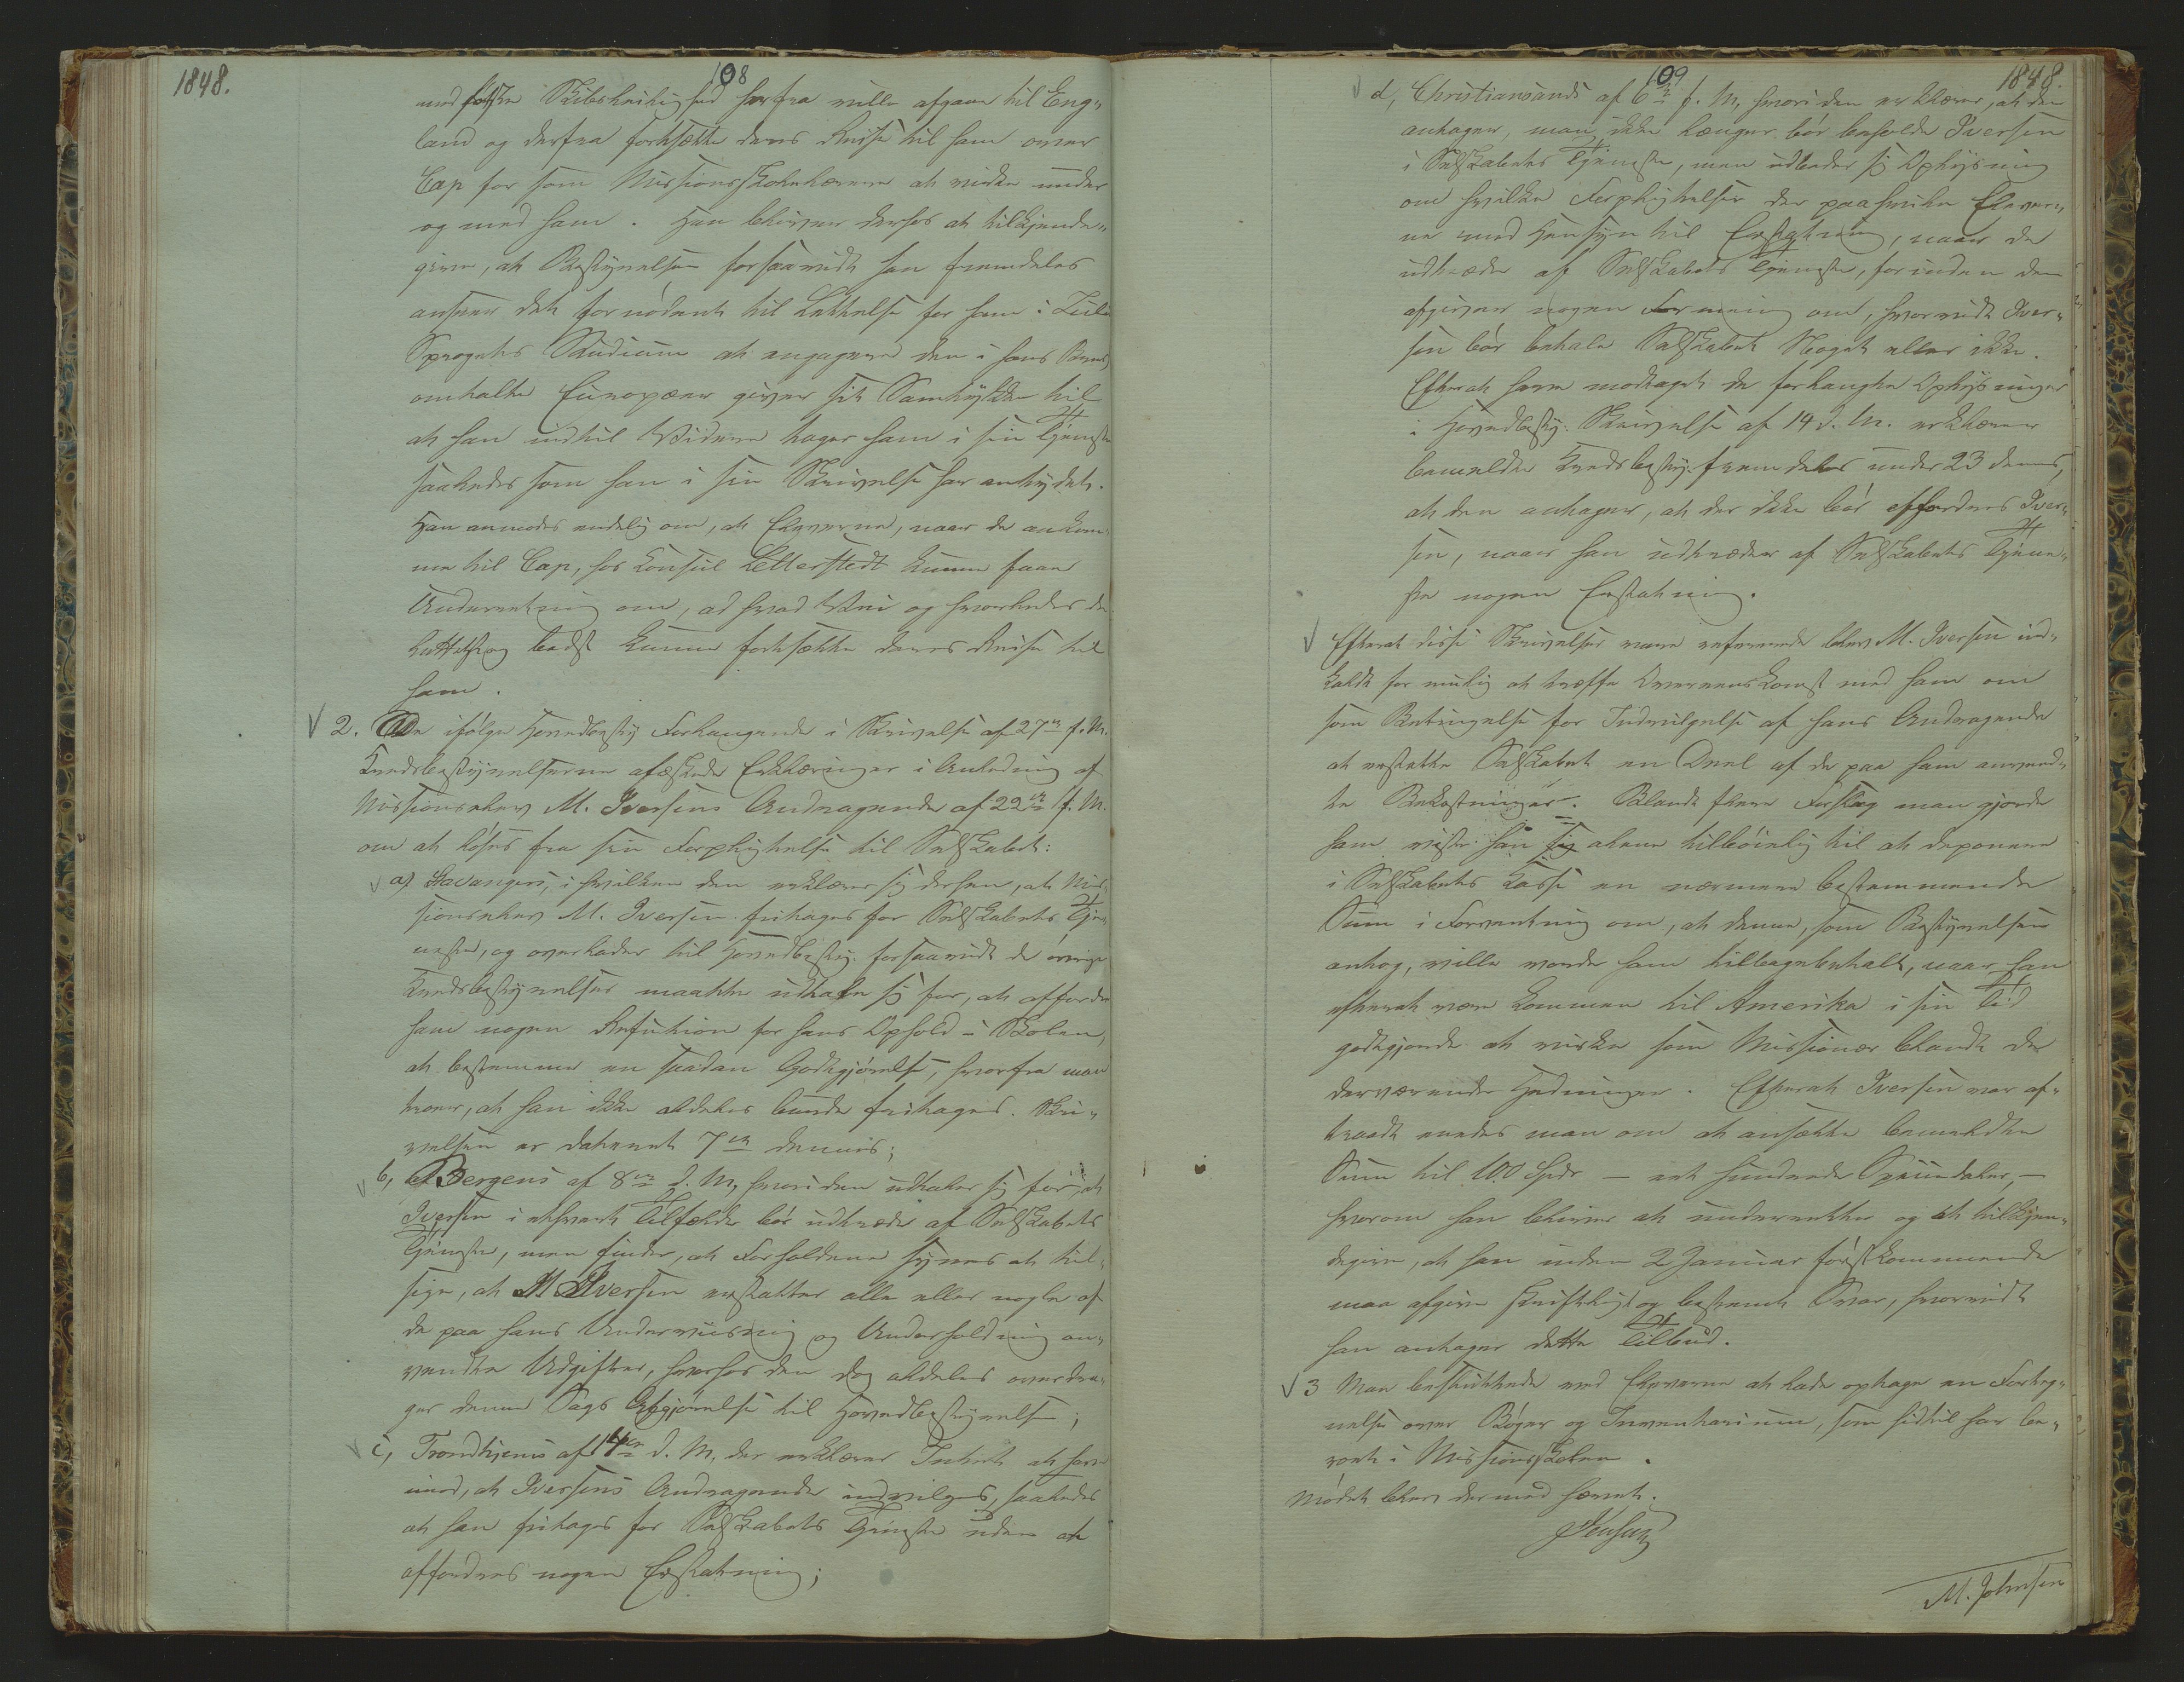 1848.
108
med første Skibsleilighed herfra ville afgaae til Eng-
land og derfra fortsætte deres Reise til ham over
Cap for som Missionsskolelærere at virke under
og med ham. Han bliver derhos at tilkjende-
give, at Bestyrelsen forsaavidt han fremdeles
anseer det fornødent til Lettelse for ham i Zulu
Sprogets Studium at engagere den i hans Brev
omtalte Europæer giver sit Samtykke til
at han indtil Videre tager ham i sin Tjeneste
saaledes som han i sin Skrivelse har antydet.
Han anmodes endelig om, at Eleverne, naar de ankom-
me til Cap, hos Consul Letterstedt kunne faae
Underretning om, ad hvad Vei og hvorledes de
lettest og bedst kunne fortsætte deres Reise til
ham.
2. De ifølge Hovedbesty: Forlangende i Skrivelse af 27de f. M.
Kredsbestyrelserne afæskede Erklæringer i Anledning af
Missionselev M. Iversens Andragende af 22de f. M.
om at løses fra sin Forpligtelse til Selskabet:
a) Stavangers, i hvilken den erklærer sig derhen, at Mis-
sionselev M. Iversen fritages for Selskabets Tje-
neste, og overlader til Hovedbesty: forsaavidt de øvrige
Kredsbestyrelser maatte udtale sig for, at affordre
ham nogen Refusion for hans Ophold i Skolen,
at bestemme en saadan Godtgjørelse, hvorfra man
troer, at han ikke aldeles burde fritages. Skri-
velsen er dateret 7de dennes;
b, Bergens af 8de d. M, hvori den udtaler sig for, at
Iversen i ethvert Tilfælde bør udtræde af Selskabets
Tjeneste, men finder, at Forholdene synes at til-
sige, at M Iversen erstatter alle eller nogle af
de paa hans Underviisning og Underholdning an-
vendte Udgifter, hvorhos den dog aldeles overdra-
ger denne Sags Afgjørelse til Hovedbestyrelsen;
c, Trondhjems af 14de d. M. der erklærer Intet at have
imod, at Iversens Andragende indvilges, saaledes
at han fritages for Selskabets Tjeneste uden at
affordres nogen Erstatning;
109
1848.
d, Christiansands af 6te f. M, hvori den erklærer, at den
antager, man ikke længer bør beholde Iversen
i Selskabets Tjeneste, men udbeder sig Oplysning
om hvilke Forpligtelser der paahvile Elever-
ne med Hensyn til Erstatning, naar de
udtræde af Selskabets Tjeneste, forinden den
afgiver nogen Formening om, hvorvidt Iver-
sen bør betale Selskabet Noget eller ikke.
Efterat have modtaget de forlangte Oplysninger
i Hovedbesty: Skrivelse af 14 d. M. erklærer
bemeldte Kredsbesty: fremdeles under 23 dennes,
at den antager, at der ikke bør affordres Iver-
sen, naar han udtræder af Selskabets Tjene-
ste nogen Erstatning.
Efterat disse Skrivelser vare refererede blev M. Iversen ind-
kaldt for mulig at træffe Overeenskomst med ham om
som Betingelse for Indvilgelse af hans Andragende
at erstatte Selskabet en Deel af de paa ham anvend-
te Bekostninger. Blandt flere Forslag man gjorde
ham viste han sig alene tilbøielig til at deponere
i Selskabets Casse en nærmere bestemmende
Sum i Forventning om, at denne, som Bestyrelsen
antog, ville vorde ham tilbagebetalt, naar han
efterat være kommen til Amerika i sin Tid
godtgjorde at virke som Missionær blandt de
derværende Hedninger. Efterat Iversen var af-
traadt enedes man om at ansætte bemeldte
Sum til 100 Spdr — eet hundrede Speciedaler, —
hvorom han bliver at underrette og at tilkjen-
degive, at han inden 2 Januar førstkommende
maa afgive skriftligt og bestemt Svar, hvorvidt
han antager dette Tilbud.
3 Man besluttede ved Eleverne at lade optage en Forteg-
nelse over Bøger og Inventarium, som hidtil har be-
roet i Missionsskolen.
Mødet blev dermed hævet.
M. Johnsen